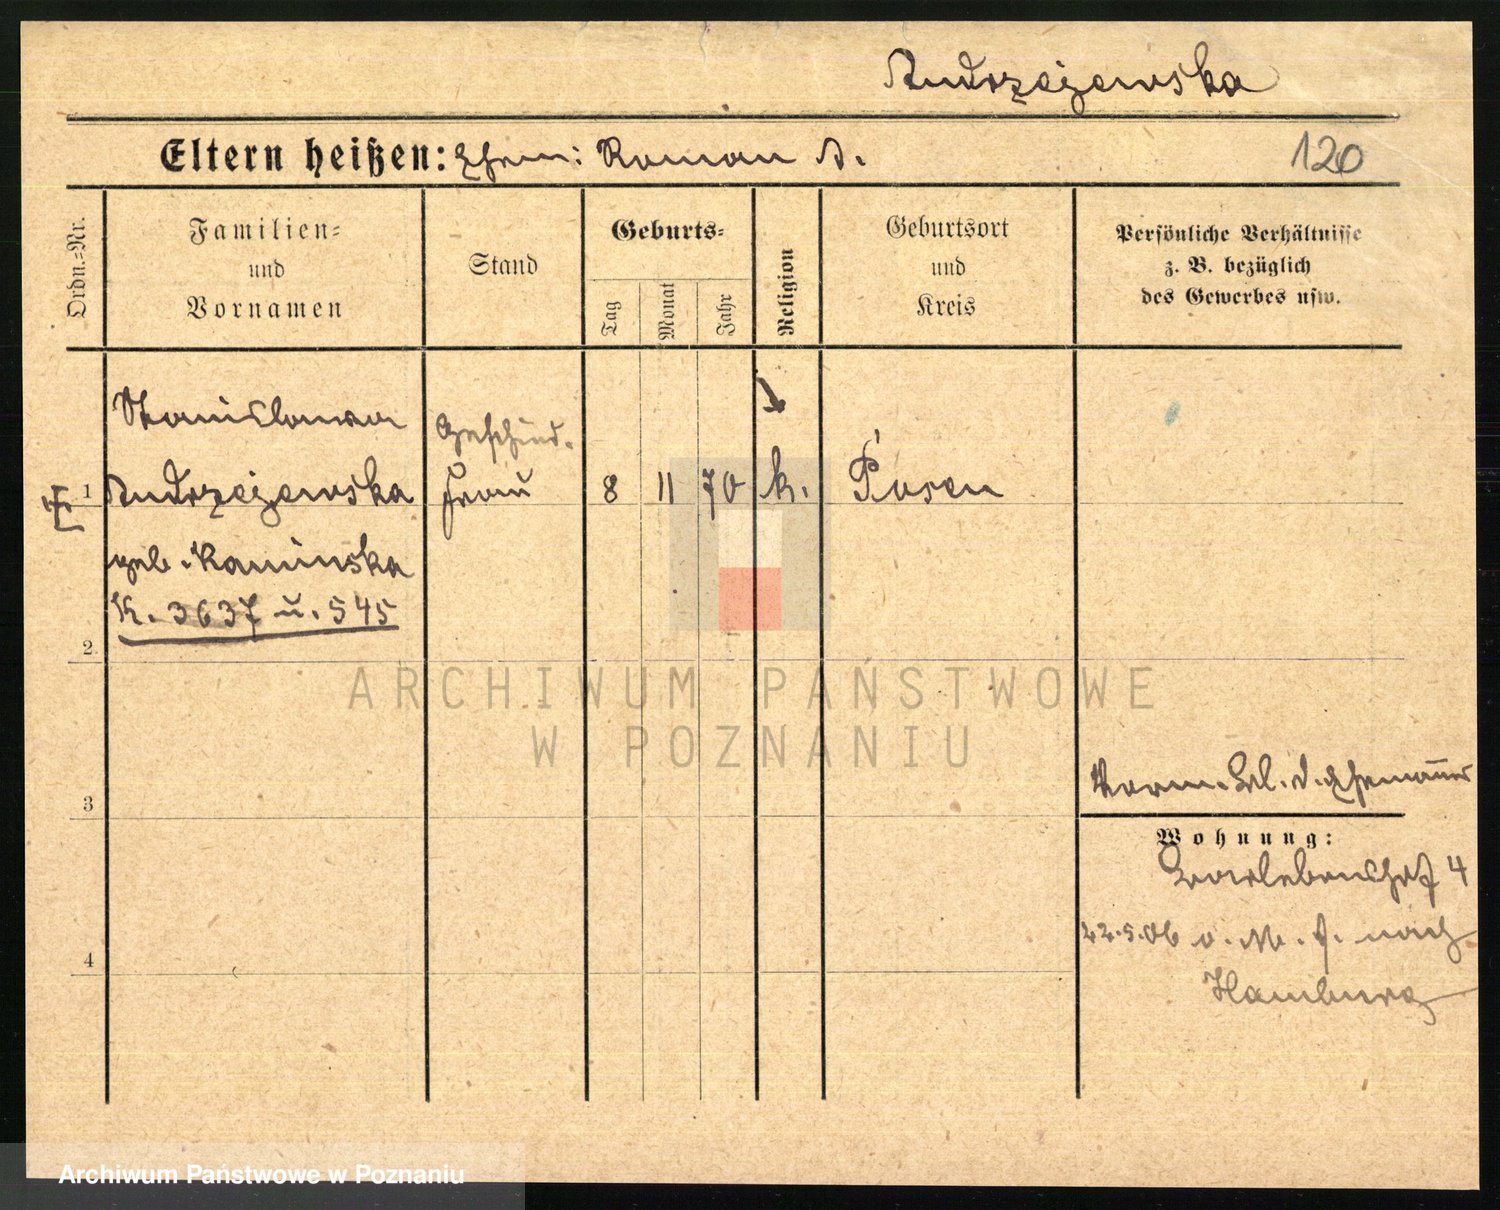 Andrzejewska
Eltern heißen: Ehem: Roman A.
120
Ordn.=Nr.
Familien=
und
Vornamen
Stand
Geburts=
Tag
Monat
Jahr
Religion
Geburtsort
und
Kreis
Persönliche Verhältnisse
z. B. bezüglich
des Gewerbes usw.
Stanislawa
Geschied.
1 Andrzejewska Frau 8 11 70 k. Posen
geb. Kaminska
K. 3637 u. 545
2
ARCHIWUM PAŃSTWOWE
W POZNANIU
Verm. Bl. d. Ehemannes
3
Wohnung:
4
22.5.06 nach
4
Hamburg
Archiwum Państwowe w Poznaniu